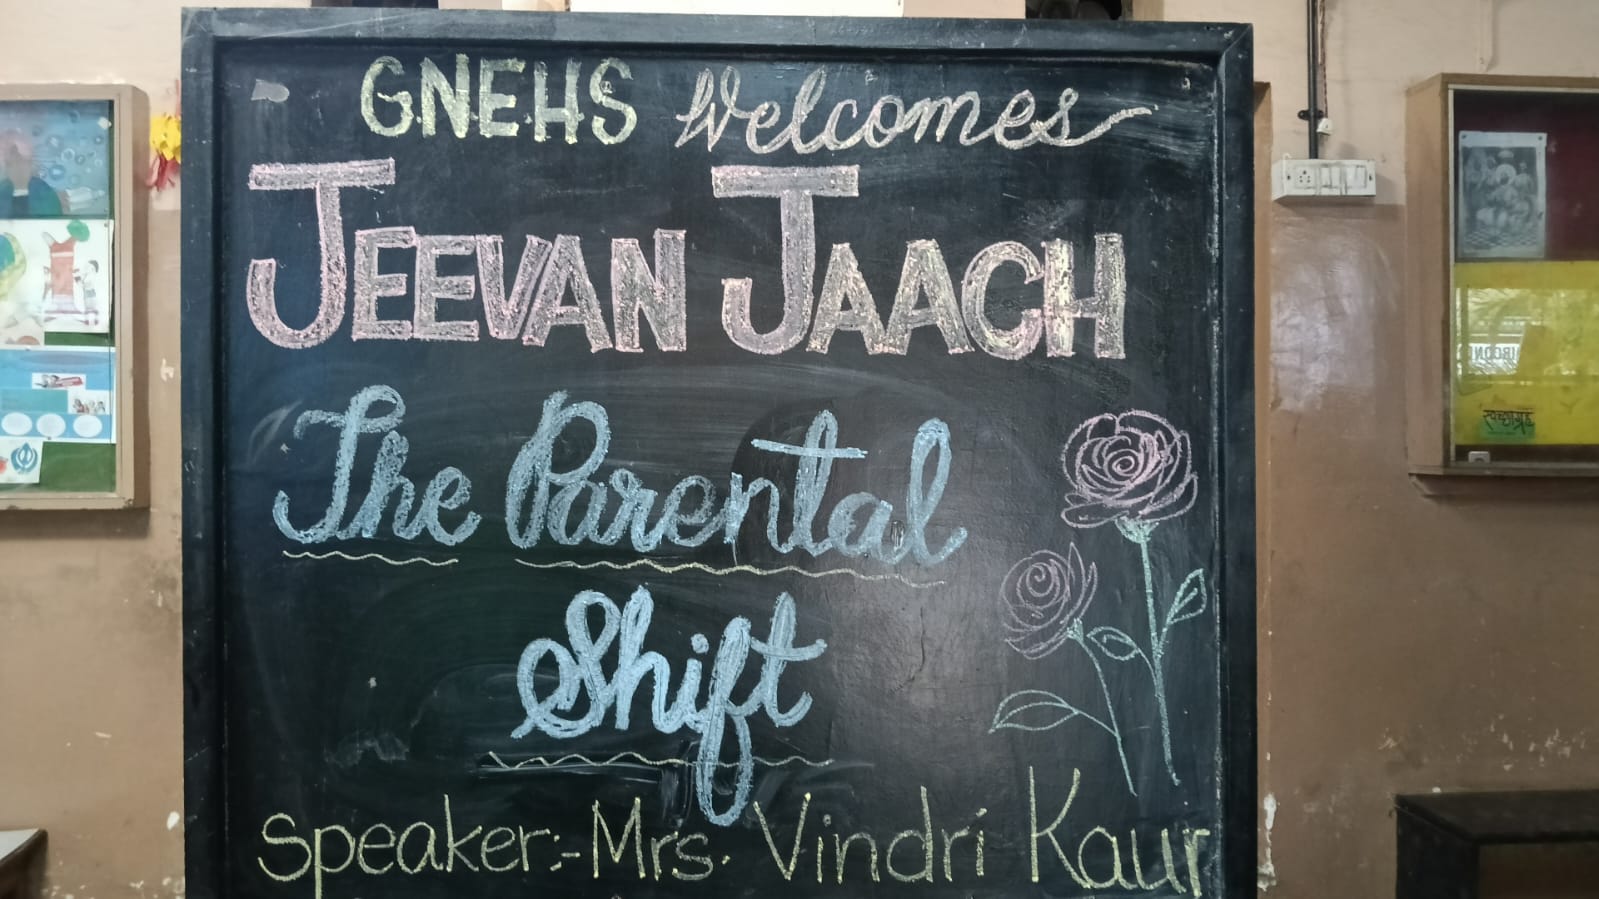 G.N.E.H.S Welcomes
JEEVAN JAACH
The Parental
Shift
Speaker:- Mrs. Vindri Kaur